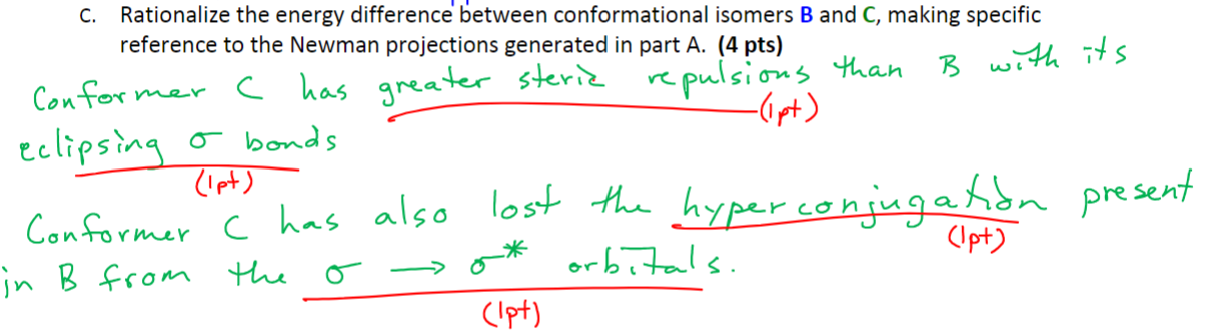 C. Rationalize the energy difference between conformational isomers B and C, making specific
reference to the Newman projections generated in part A. (4 pts)
Conformer C has greater steric repulsions than B with its
(1pt)
eclipsing σ bonds
(1pt)
Conformer C has also lost the hyperconjugation present
(1pt)
in B from the σ → σ* orbitals.
(1pt)